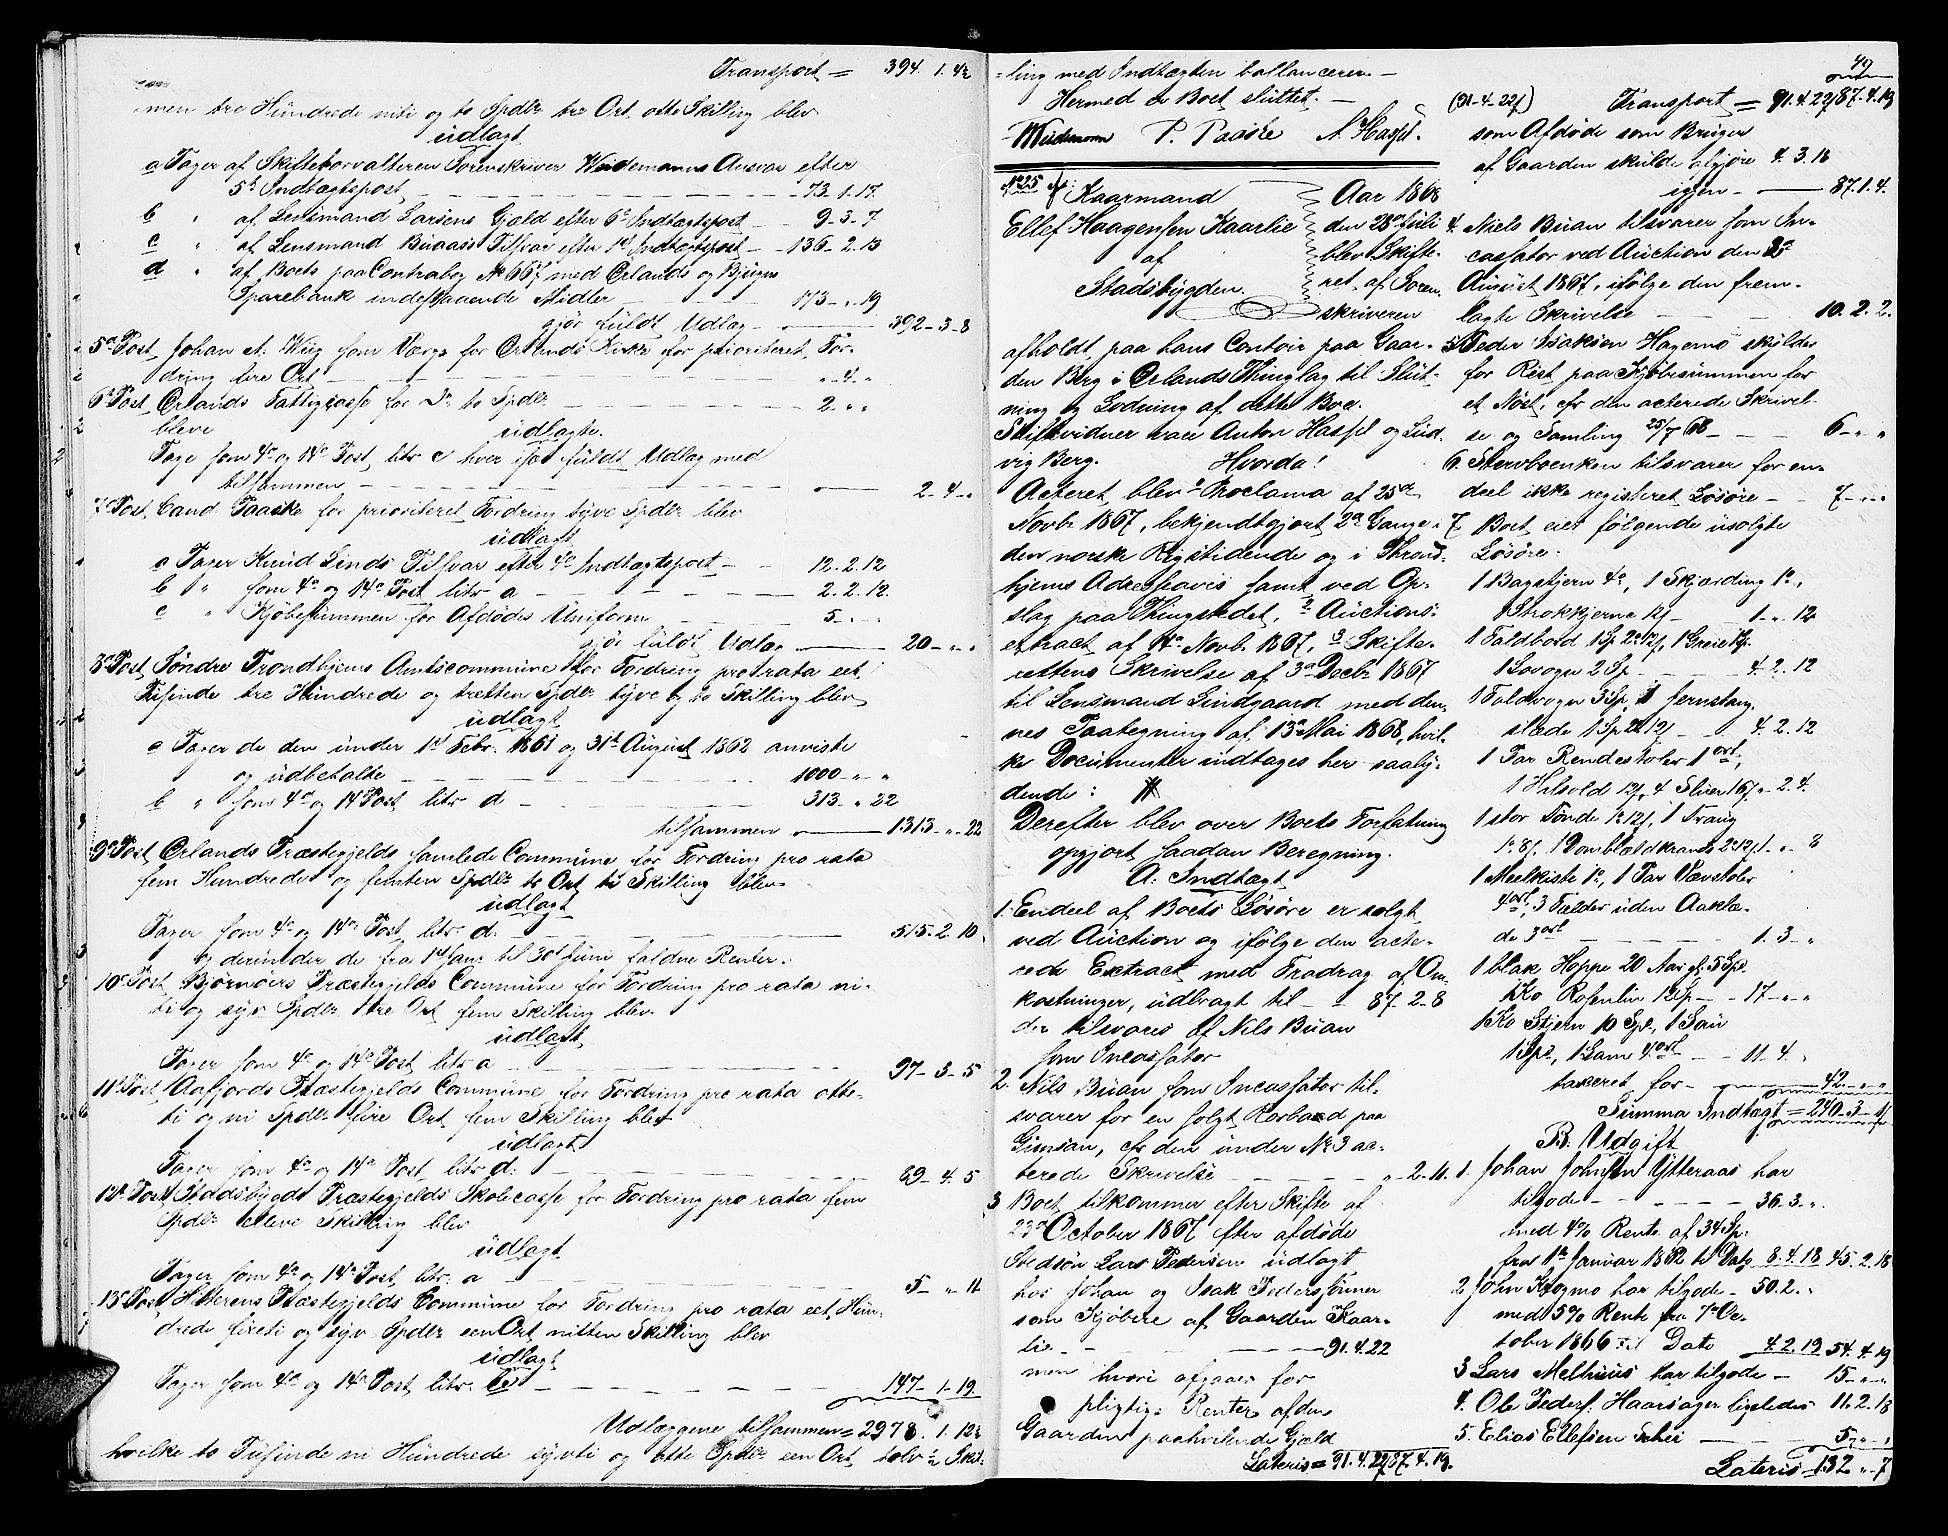 Transport = 394. 1. 4½
men tre Hundrede niti og to Spdlr tre Ort otte Skilling blev
udlagt
a Tager af Skifteforvalteren Sorenskriver Weidemanns Ansvar efter
5te Indtægtspost, 73. 1. 17.
b " af Lensmand Larsens Gjæld efter 6te Indtægtspost 9-3-7
c " af Lensmand Buaas Tilsvar efter 1ste Indtægtspost 136-2-13
d " af Boets paa Contrabog No 667 med Ørlands og Bjugns
Sparebank indestaaende Midler 173-"-19
gjør fuldt Udlag 392-3-8
5te Post, Johan A. Wiig som Værge for Ørlands Kirke for prioriteret For-
dring fire Ort "-4-"
6te Post Ørlands Fattigcasse for Do to Spdlr 2-"-"
bleve udlagte.
Tage som 4de og 14de Post, litr c hver især fuldt Udlæg med
tilsammen 2-4-"
7de Post, Cand Paaske for prioriteret Fordring tyve Spdlr blev
udlagt
a Tager Knud Linds Tilsvar efter 4de Indtægtspost 12. 2. 12
b " som 4de og 14de Post litr a 2. 2. 12.
c " Kjøbesummen for Afdødes Uniform 5-"-"
gjør fuldt Udlæg 20-"-"
8de Post, Søndre Trondhjems Amtscommune for Fordring pro rata eet
Tusinde tre Hundrede og tretten Spdlr tyve og to Skilling blev
udlagt
a Tager de den under 1ste Febr. 1861 og 31te August 1862 anviste
og udbetalte 1000-"-"
b " som 4de og 14 Post, litr d 313-"-22
tilsammen 1313-"-22
9de Post, Ørlands Præstegjelds samlede Commune for Fordring pro rata
fem Hundrede og femten Spdlr to Ort ti Skilling blev
udlagt
Tager som 4de og 14de Post, litr. d. 515-2-10
og derunder de fra 1ste Janr til 30te Juni faldne Renter.
10de Post, Bjørnørs Præstegjelds Commune for Fordring pro rata ni-
ti og syv Spdlr tre Ort fem Skilling blev
udlagt
Tager som 4de og 14de Post, litr a 97-3-5
11te Post, Aafjords Præstegjelds Commune for Fordring pro rata otte-
ti og ni Spdlr fire Ort fem Skilling blev
udlagt
Tager som 4de og 14de Post, litr d. 89-4-5
12te Post Stadsbygds Præstegjelds Skolecasse for Fordring pro rata fem
Spdlr elleve Skilling blev
udlagt
Tager som 4de og 14de Post, litr. a 5-"-11
13de Post, Hitterens Præstegjelds Commune for Fordring pro rata eet Hun-
drede firti og syv Spdlr een Ort nitten Skilling blev
udlagt
Tager som 4de og 14de Post, litr. 147-1-19
Udlæggene tilsammen = 2978. 1. 12½
hvilke to Tusinde ni Hundrede sytti og otte Spdlr een Ort tolv ½ Skil-
49
-ling med Indtægten ballancerer.-
Hermed er Boet sluttet.-
Weidemann P. Paaske A. Hassel.
No 25 Kaarmand
Ellef Haagensen Kaarlie
af
Stadsbygden.
Aar 1868
den 28de Juli
blev Skifte-
ret, af Soren-
skriveren
afholdt paa hans Contoir paa Gaar-
den Berg i Ørlands Thinglag til Slut-
ning og Lodning af dette Boe.
Skiftevidner vare Anton Hassel og Lud-
vig Berg. Hvorda!
Acteret blev 1 Proclama af 25de
Novbr 1867, bekjendtgjort 2de Gange i
den norske Rigstidende og i Thrond-
hjems Adresseavis samt ved Op-
slag paa Thingstedet, 2 Auctions-
extract af Novbr 1867, 3 Skifte-
rettens Skrivelse af 3de Decbr 1867
til Lensmand Lindgaard med den-
nes Paategning af 13de Mai 1868, hvil-
ke Documenter indtages her saaly-
dende:
Derefter blev over Boets Forfatning
opgjort saadan Beregning.
A: Indtægt
1. Endeel af Boets Løsøre er solgt
ved Auction og ifølge den acte-
rede Extract med Fradrag af Om-
kostninger, udbragt til 87-2-8
der tilsvares af Nils Buan
som Incassator
2. Nils Buan som Incassator til-
svarer for en solgt paa
Gimsan, cfr den under No 3 ac-
terede Skrivelse "-2-11.
3 Boet tilkommer efter Skifte af
23de October 1867 efter afdøde
Stedsøn Lars Pedersen udlagt
hos Johan og Isak Pedersønner
som Kjøbere af Gaarden Kaar-
lie 91. 4. 22
men hvori afgaaer for
pligtige Renter af den
Gaarden paahvilende Gjæld
Lateris = 91. 4. 22/87. 4. 19.
(91-4-22/) Transport = 91. 4. 22/87. 4. 19
som Afdøde som Bruger
af Gaarden skulde afgjøre 4. 3. 18
igjen 87. 1. 4.
4. Niels Buan tilsvarer som In-
cassator ved Auction den
August 1867, ifølge den frem-
lagte Skrivelse 10. 2. 2.
5 Peder Isaksen Hagemo skylder
for Rest paa Kjøbesummen for
et Nøst, cfr den acterede Skrivel-
se og Samling 25/7 68 6-"-"
6. Stervboenken tilsvarer for en-
deel ikke registeret Løsøre 7-"-"
7 Boet eier følgende usolgte
Løsøre:
1 Bagstjern 4o, 1 Skjærding 1o,
1 Strokkjerne 12/ 1-"-12
1 Foldbord 1 Sp 2o 12/, 1 Greie
1 Lovogn 2 Sp 4. 2. 12
1 Foldvogn 3 Sp, 1 Jernstang-
slæde 1 Sp 2o 12/ 4. 2. 12
1 Par Rendestoler 1 ort,
1 Hitsold 12/, 4 16/ "-2-4.
1 stor Tønde 1o 12/, 1 Traug
1o 8/, 1 2o 12/ 1-"-8
1 Meelkiste 1o, 1 Par Vævstoler
4 ort, 3 Fælder uden Aaklæ-
de 3 ort 1. 3-"
1 blak Hoppe 20 Aar gl. 5 Spd.
1 Ko Rosenlin 12 Sp 17-"-"
1 Ko Stjern 10 Spd, 1 Sau
1 Spd, 1 Lam 4 ort 11. 4. "
taxeret for 42-"-"
Summa Indtægt = 240-3-
B: Udgift
1. Johan Johnsen Ytteraas har
tilgode 36. 3. "
med 4% Rente af 34 Sp.
fra 1ste Januar 1862 til Dato 8. 4. 18 45. 2. 18
2. John Krogmo har tilgode 50. 2. "
med 5% Rente fra 7de Oc-
tober 1866 til Dato 4. 2. 19 54. 4. 19
3 Lars Melhuus har tilgode 15-"-"
4. Ole Peders. Haarsager ligeledes 11. 2. 18
5. Elias Ellefsen 5-"-"
Lateris 132-"-7